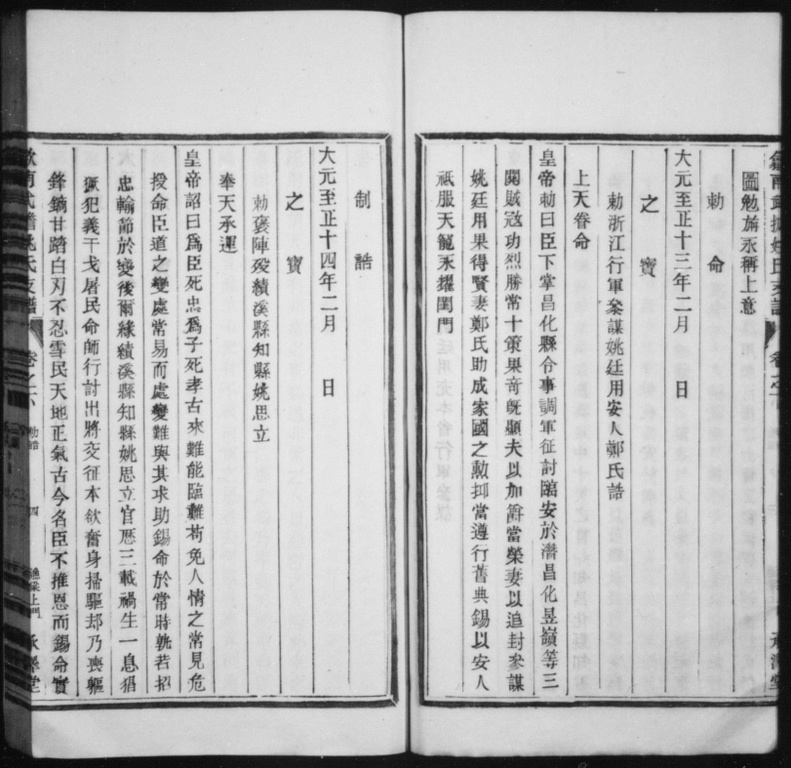 圖勉旃永稱上意
勅命
大元至正十三年二月　日
之寶
勅浙江行軍叅謀姚廷用安人鄭氏誥
上天眷命
皇帝勅曰臣下掌昌化縣令事調軍征討臨安於潛昌化昱嶺等三
関賊寇功烈勝常十策果奇旣顯夫以加爵當榮妻以追封叅謀
姚廷用果得賢妻鄭氏助成家國之勲抑當遵行舊典錫以安人
祇服天寵永耀閨門
制誥
大元至正十四年二月　日
之寶
勅褒陣殁績溪縣知縣姚思立
奉天承運
皇帝詔曰爲臣死忠爲子死孝古來難能臨難苟免人情之常見危
授命臣道之變處常易而處變難與其求助錫命於常時孰若招
忠輸節於變後爾緣績溪縣知縣姚思立官歴三載禍生一息猖
獗犯義干戈屠民命師行討出將交征本欲奮身掃驅却乃喪軀
鋒鏑甘蹈白刃不忍雪民天地正氣古今名臣不推恩而錫命實
卷之
勅誥
四